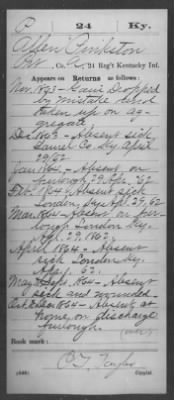 P 24 Ky.
Allen Pinkston
Pvt, Co. A, 24 Reg't Kentucky Inf.
Appears on Returns as follows:
Nov. 1863- Gain Dropped
by mistake and
taken up on
Dec. 1863- Absent sick,
Co Ky. April
29/62
Jan. 1864- Absent on
furlough, 29, Apl. '62
Feb. 1864, Absent sick
London, Ky. Apl. 29, 62
Mar. 1864- Absent on fur-
lough London Ky.
Apl. 29, 1862.
April 1864- Absent
sick London Ky.
Apr. 62.
May Sept. 1864- Absent
sick and wounded-
Oct. Dec. 1864- Absent at
home, on discharge
furlough.
(over)
Book mark:
Copyist.